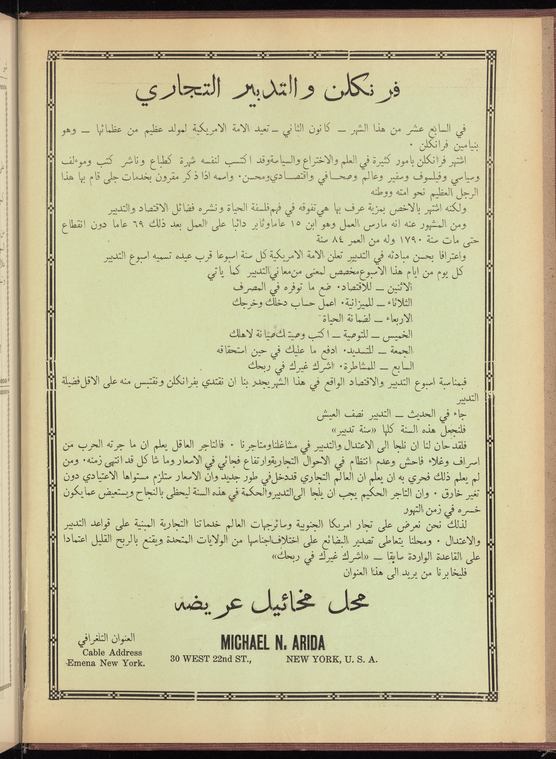 فرنكلن والتدبير التجاري
في السابع عشر من هذا الشهر — كانون الثاني — تعيد الامة الامريكية لمولد عظيم من عظمائها — وهو
بنيامين فرانكلن .
اشتهر فرانكلن بامور كثيرة في العلم والاختراع والسياسة وقد اكتسب لنفسه شهرة كطباع وناشر كتب وموءلف
وسياسي وفيلسوف وسفير وعالم وصحافي واقتصادي ومحسن. واسمه اذا ذكر مقرون بخدمات جلى قام بها هذا
الرجل العظيم نحو امته ووطنه
ولكنه اشتهر بالاخص بمزية عرف بها هي تفوقه في فهم فلسفة الحياة ونشره فضائل الاقتصاد والتدبير
ومن المشهور عنه انه مارس العمل وهو ابن ١٥ عاما وثابر دائبا على العمل بعد ذلك ٦٩ عاما دون انقطاع
حتى مات سنة ١٧٩٠ وله من العمر ٨٤ سنة
واعترافا بحسن مبادئه في التدبير تعلن الامة الامريكية كل سنة اسبوعا قرب عيده تسميه اسبوع التدبير
كل يوم من ايام هذا الاسبوع مخصص لمعنى من معاني التدبير كما ياتي
الاثنين — للاقتصاد. ضع ما توفره في المصرف
الثلاثاء — للميزانية. اعمل حساب دخلك وخرجك
الاربعاء — لضمانة الحياة
الخميس — للتوصية — اكتب وصيتك صيانة لاهلك
الجمعة — للتسديد. ادفع ما عليك في حين استحقاقه
السابع — للمشاطرة. اشرك غيرك في ربحك
فبمناسبة اسبوع التدبير والاقتصاد الواقع في هذا الشهر يجدر بنا ان نقتدي بفرانكلن ونقتبس منه على الاقل فضيلة
التدبير
جاء في الحديث — التدبير نصف العيش
فلنجعل هذه السنة كلها «سنة تدبير»
فلقد حان لنا ان نلجا الى الاعتدال والتدبير في مشاغلنا ومتاجرنا . فالتاجر العاقل يعلم ان ما جرته الحرب من
اسراف وغلاء فاحش وعدم انتظام في الاحوال التجارية وارتفاع فجائي في الاسعار وما شاكل قد انتهى زمنه. ومن
لم يعلم ذلك فحري به ان يعلم ان العالم التجاري قد دخل في طور جديد وان الاسعار ستلازم مستواها الاعتيادي دون
تغير خارق . وان التاجر الحكيم يجب ان يلجا الى التدبير والحكمة في هذه السنة ليحظى بالنجاح ويستعيض عما يكون
خسره في زمن التهور
لذلك نحن نعرض على تجار امريكا الجنوبية وسائر جهات العالم خدماتنا التجارية المبنية على قواعد التدبير
والاعتدال . ومحلنا يتعاطى تصدير البضائع على اختلاف اجناسها من الولايات المتحدة ويقنع بالربح القليل اعتمادا
على القاعدة الواردة سابقا — «اشرك غيرك في ربحك»
فليخابرنا من يريد الى هذا العنوان
محل مخائيل عريضه
MICHAEL N. ARIDA
30 WEST 22nd ST., NEW YORK, U. S. A.
العنوان التلغرافي
Cable Address
Emena New York.